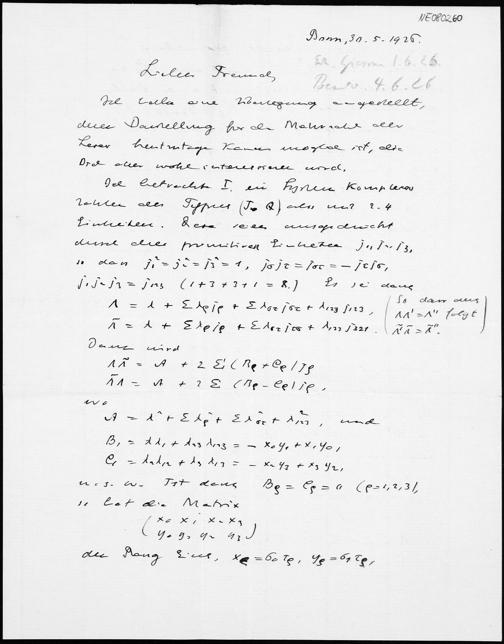 NE080260
Bonn, 30.5.1926.
Gr. 1.6.26.
Beantw. 4.6.26
Lieber Freund,
Ich habe eine Überlegung angestellt,
deren Darstellung für die Mehrzahl der
heutzutage kaum möglich ist, die
Dich aber wohl interessieren wird.
Ich betrachte I. ein System komplexer
Zahlen des Typus (J. Q) also mit 2·4
Einheiten. Diese seien ausgedrückt
durch drei primitive Einheiten j₁, j₂, j₃,
so dass j₁² = j₂² = j₃² = 1, jσjτ = jστ = −jτjσ,
j₁j₂j₃ = j₁₂₃ (1+3+3+1 = 8.) Es sei dann
Λ = λ + Σλρjρ + Σλστjστ + λ₁₂₃j₁₂₃,
Λ̃ = λ + Σλρjρ + Σλστjτσ + λ₁₂₃j₃₂₁.
(So dass aus
ΛΛ' = Λ'' folgt
Λ̃'Λ̃ = Λ̃''.)
Dann wird
ΛΛ̃ = A + 2Σ(Bρ + Cρ)jρ
Λ̃Λ = A + 2Σ(Bρ − Cρ)jρ,
wo
A = λ² + Σλρ² + Σλστ² + λ₁₂₃², und
B₁ = λλ₁ + λ₂₃λ₁₂₃ = − x₀y₁ + x₁y₀,
C₁ = λ₂λ₁₂ + λ₃λ₁₃ = − x₂y₃ + x₃y₂,
u.s.w. Ist dann Bρ = Cρ = 0 (ρ = 1, 2, 3),
so hat die Matrix
(x₀ x₁ x₂ x₃
y₀ y₁ y₂ y₃)
den Rang Eins, xρ = σ₀τρ, yρ = σ₁τρ,